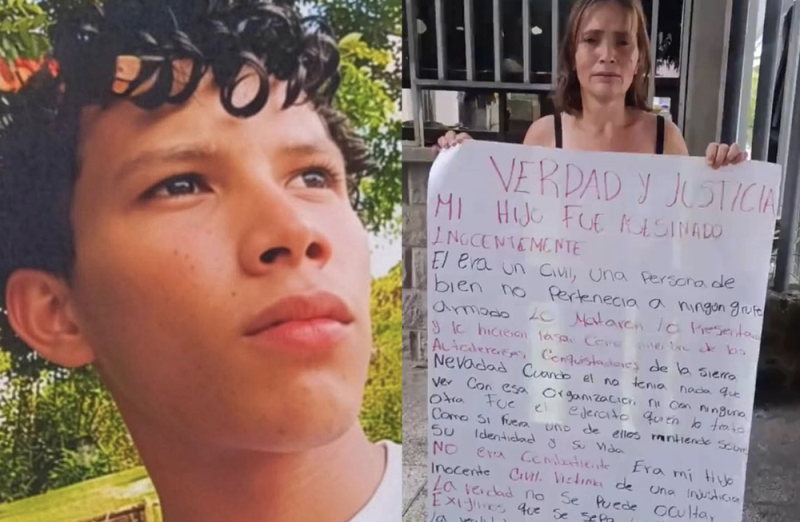 VERDAD Y JUSTICIA
MI HIJO FUE ASESINADO
INOCENTEMENTE
El era un Civil, una Persona de
bien no Pertenecia a ningun grupo
armado Lo Mataron lo Presentaron
y lo hicieron Pasar Como de los
Autodefensas Conquistadores de la Sierra
Nevadad Cuando el no tenia nada que
ver con esa organización ni con ninguna
otra Fue el ejercito quien lo trato
Como si fuera uno de ellos mintiendo sobre
Su Identidad y su vida
No era Combatiente Era mi Hijo
Inocente Civil Victima de una injusticia
La verdad no se Puede Oculta,
Exijimos que se sepa
la verdad